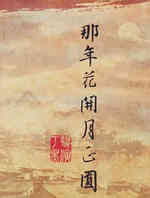 那年花開月正圓